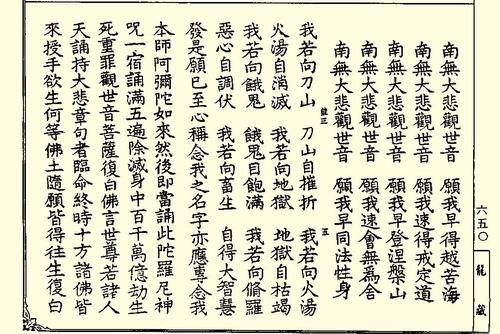 六五〇
龍藏
南無大悲觀世音 願我早得越苦海
南無大悲觀世音 願我速得戒定道
南無大悲觀世音 願我早登涅槃山
南無大悲觀世音 願我速會無為舍
南無大悲觀世音 願我早同法性身
五
我若向刀山 刀山自摧折 我若向火湯
火湯自消滅 我若向地獄 地獄自枯竭
我若向餓鬼 餓鬼自飽滿 我若向脩羅
惡心自調伏 我若向畜生 自得大智慧
發是願已至心稱念我之名字亦應專念我
本師阿彌陀如來然後即當誦此陀羅尼神
呪一宿誦滿五遍除滅身中百千萬億劫生
死重罪觀世音菩薩復白佛言世尊若諸人
天誦持大悲章句者臨命終時十方諸佛皆
來授手欲生何等佛土隨願皆得往生復白